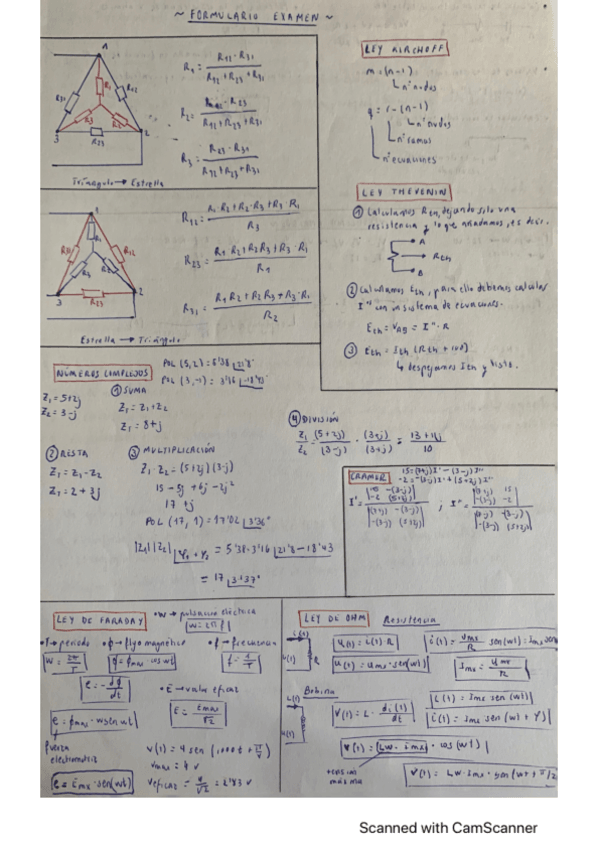 ~ FORMULARIO EXAMEN ~
1
R31
R1
R12
R3
R2
3
R23
2
Triángulo → Estrella
R1 = R12 · R31 / R12 + R23 + R31
R2 = R12 · R23 / R12 + R23 + R31
R3 = R23 · R31 / R12 + R23 + R31
1
R31
R1
R12
R3
R2
3
R23
2
Estrella → Triángulo
R12 = R1 · R2 + R2 · R3 + R3 · R1 / R3
R23 = R1 R2 + R2 R3 + R3 · R1 / R1
R31 = R1 R2 + R2 R3 + R3 · R1 / R2
LEY KIRCHOFF
m = (n-1)
nº nudos
q = r - (n-1)
nº nudos
nº ramas
nº ecuaciones
LEY THEVENIN
① Calculamos Rth, dejando solo una
resistencia y lo que añadamos, es decir.
A
Rth
B
② Calculamos Eth, para ello debemos calcular
I'' con un sistema de ecuaciones.
Eth = VAB = I'' · R
③ Eth = Ith (Rth + 100)
↳ despejamos Ith y lista.
NÚMEROS COMPLEJOS
POL (5,2) = 5'38 |21'8°
POL (3,-1) = 3'16 |-18'43
Z1 = 5+2j
Z2 = 3-j
① SUMA
Z1 = Z1 + Z2
Z1 = 8+j
② RESTA
Z1 = Z1 - Z2
Z1 = 2 + 3j
③ MULTIPLICACIÓN
Z1 · Z2 = (5+2j) (3-j)
15 - 5j + 6j - 2j²
17 + j
POL (17, 1) = 17'02 |3'36°
|Z1| |Z2| |φ1 + φ2 = 5'38 · 3'16 |21'8 - 18'43
= 17 |3'37°
④ DIVISIÓN
Z1/Z2 = (5+2j)/(3-j) · (3+j)/(3+j) = 13 + 11j / 10
CRAMER
-2 = -(3-j) I' + (5+2j) I''
I' =
; I'' =
LEY DE FARADAY
• W → pulsación eléctrica
W = 2π f
• T → periodo
• φ → flujo magnético
• f → frecuencia
W = 2π/T
φ = φmax · cos wt
f = 1/T
e = - dφ/dt
• E → valor eficaz
e = φmax · w sen wt
E = Emax/√2
fuerza
electromotriz
V(t) = 4 sen (1000t + π/4)
Vmax = 4 V
Veficaz = 4/√2 = 2'83 V
e = Emx · sen(wt)
LEY DE OHM
Resistencia
i(t)
u(t)
R
u(t) = i(t) · R
u(t) = Umx · sen(wt)
i(t) = Umx/R sen(wt) = Imx sen
Imx = Umx/R
Bobina
i(t)
u(t)
V(t) = L · di(t)/dt
i(t) = Imx sen(wt)
i(t) = Imx sen (wt + φ)
V(t) = (LW · Imx) · cos (wt)
tensión
máxima
V(t) = LW · Imx · sen (wt + π/2
Scanned with CamScanner